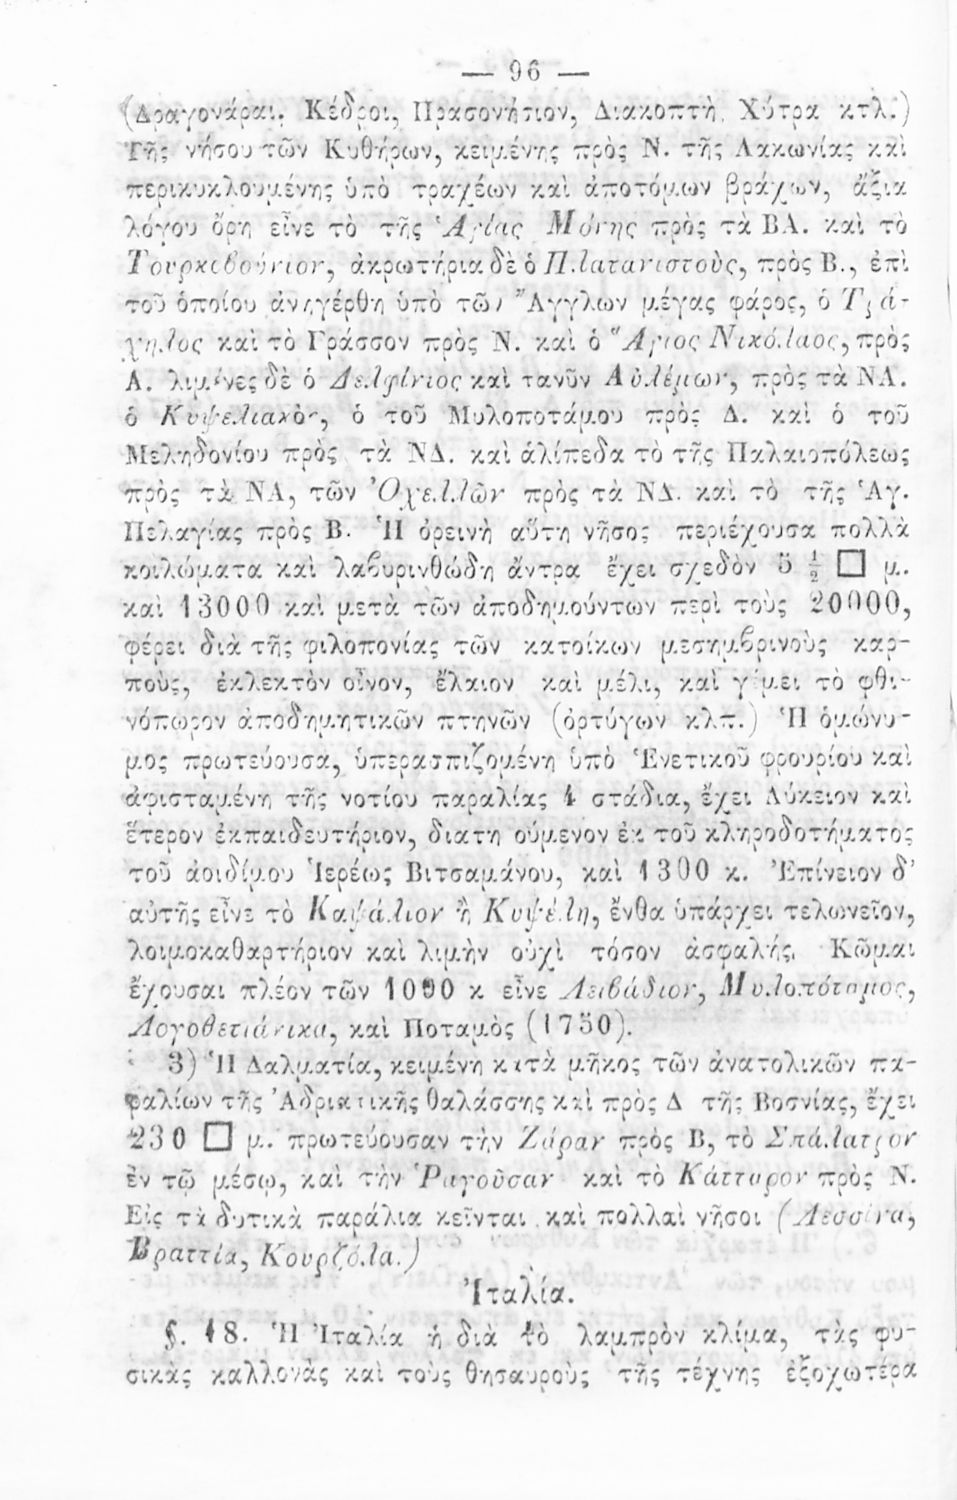 — 96 —
(Δραγονάραι, Κέδροι, Πρασονήσιον, Διακοπτὴ, Χύτρα κτλ.)
Τῆς νήσου τῶν Κυθήρων, κειμένης πρὸς Ν. τῆς Λακωνίας καὶ
περικυκλουμένης ὑπὸ τραχέων καὶ ἀποτόμων βράχων, ἄξια
λόγου ὄρη εἶνε τὸ τῆς Ἁγίας Μόνης πρὸς τὰ ΒΑ. καὶ τὸ
Τουρκοβούνιον, ἀκρωτήρια δὲ ὁ Πλατανιστοὺς, πρὸς Β., ἐπὶ
τοῦ ὁποίου ἀνηγέρθη ὑπὸ τῶν Ἄγγλων μέγας φάρος, ὁ Τρά-
χηλος καὶ τὸ Γράσσον πρὸς Ν. καὶ ὁ Ἅγιος Νικόλαος, πρὸς
Α. λιμένες δὲ ὁ Δελφίνιος καὶ τανῦν Αὐλέμων, πρὸς τὰ ΝΑ.
ὁ Κυψελιακὸς, ὁ τοῦ Μυλοποτάμου πρὸς Δ. καὶ ὁ τοῦ
Μεληδονίου πρὸς τὰ ΝΔ. καὶ ἁλίπεδα τὸ τῆς Παλαιοπόλεως
πρὸς τὰ ΝΑ, τῶν Ὀχελλῶν πρὸς τὰ ΝΔ. καὶ τὸ τῆς Ἁγ.
Πελαγίας πρὸς Β. Ἡ ὀρεινὴ αὕτη νῆσος περιέχουσα πολλὰ
κοιλώματα καὶ λαβυρινθώδη ἄντρα ἔχει σχεδὸν 5 ½ □ μ.
καὶ 13000 καὶ μετὰ τῶν ἀποδημούντων περὶ τοὺς 20000,
φέρει διὰ τῆς φιλοπονίας τῶν κατοίκων μεσημβρινοὺς καρ-
ποὺς, ἐκλεκτὸν οἶνον, ἔλαιον καὶ μέλι, καὶ γέμει τὸ φθι-
νόπωρον ἀποδημητικῶν πτηνῶν (ὀρτύγων κλπ.) Ἡ ὁμώνυ-
μος πρωτεύουσα, ὑπερασπιζομένη ὑπὸ Ἑνετικοῦ φρουρίου καὶ
ἀφισταμένη τῆς νοτίου παραλίας 4 στάδια, ἔχει Λύκειον καὶ
ἕτερον ἐκπαιδευτήριον, διατηρούμενον ἐκ τοῦ κληροδοτήματος
τοῦ ἀοιδίμου Ἱερέως Βιτσαμάνου, καὶ 1300 κ. Ἐπίνειον δ'
αὐτῆς εἶνε τὸ Καψάλιον ἢ Κυψέλη, ἔνθα ὑπάρχει τελωνεῖον,
λοιμοκαθαρτήριον καὶ λιμὴν οὐχὶ τόσον ἀσφαλής. Κῶμαι
ἔχουσαι πλέον τῶν 1000 κ εἶνε Λειβάδιον, Μυλοπόταμος,
Λογοθετιάνικα, καὶ Ποταμὸς (1750).
3) Ἡ Δαλματία, κειμένη κατὰ μῆκος τῶν ἀνατολικῶν πα-
ραλίων τῆς Ἀδριατικῆς θαλάσσης καὶ πρὸς Δ τῆς Βοσνίας, ἔχει
230 □ μ. πρωτεύουσαν τὴν Ζάραν πρὸς Β, τὸ Σπάλατρον
ἐν τῷ μέσῳ, καὶ τὴν Ῥαγοῦσαν καὶ τὸ Κάτταρον πρὸς Ν.
Εἰς τὰ δυτικὰ παράλια κεῖνται καὶ πολλαὶ νῆσοι (Λεσσίνα,
Βραττία, Κουρζόλα.)
Ἰταλία.
§. 18. Ἡ Ἰταλία ἡ διὰ τὸ λαμπρὸν κλίμα, τὰς φυ-
σικὰς καλλονὰς καὶ τοὺς θησαυροὺς τῆς τέχνης ἐξοχωτέρα